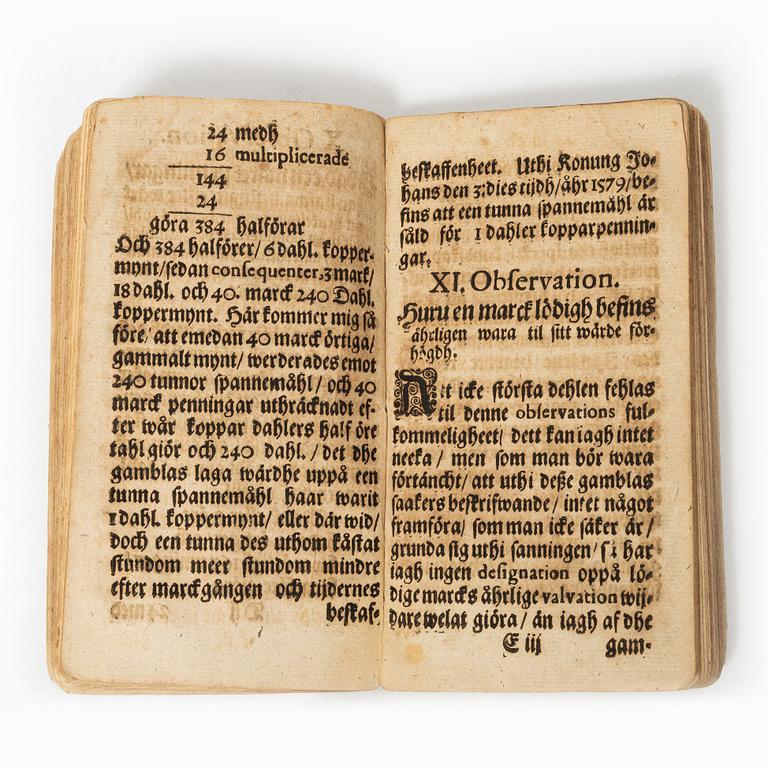 24 medh
16 multiplicerade
144
24
göra 384 halförar
Och 384 halförer/ 6 dahl. kopper-
mynt/sedan consequenter, 3 mark/
18 dahl. och 40. marck 240 Dahl.
koppermynt. Här kommer mig så
före/ att emedan 40 marck örtiga/
gammalt mynt/ werderades emot
240 tunnor spannemåhl/ och 40
marck penningar uthräcknadt ef-
ter wår koppar dahlers half öre
tahl giör och 240 dahl. / det dhe
gamblas laga wärdhe uppå een
tunna spannemåhl haar warit
1 dahl. koppermynt/ eller där wid/
doch een tunna des uthom kåstat
stundom meer stundom mindre
efter marckgången och tijdernes
beskaf-
beskaffenheet. Uthi Konung Jo-
hans den 3: dies tijdh/åhr 1579/be-
fins att een tunna spannemåhl är
såld för 1 dahler kopparpennin-
gar.
XI. Observation.
Huru en marck lödigh befins
åhrligen wara til sitt wärde för-
högdh.
Att icke största dehlen fehlas
til denne observations ful-
kommeligheet/ dett kan iagh intet
neeka / men som man bör wara
förtäncht/ att uthi deße gamblas
saakers beskrifwande/ intet något
framföra/ som man icke säker är/
grunda sig uthi sanningen/ så har
iagh ingen designation oppå lö-
dige marcks åhrlige valvation wij-
dare welat giöra/ än iagh af dhe
E iij gam-